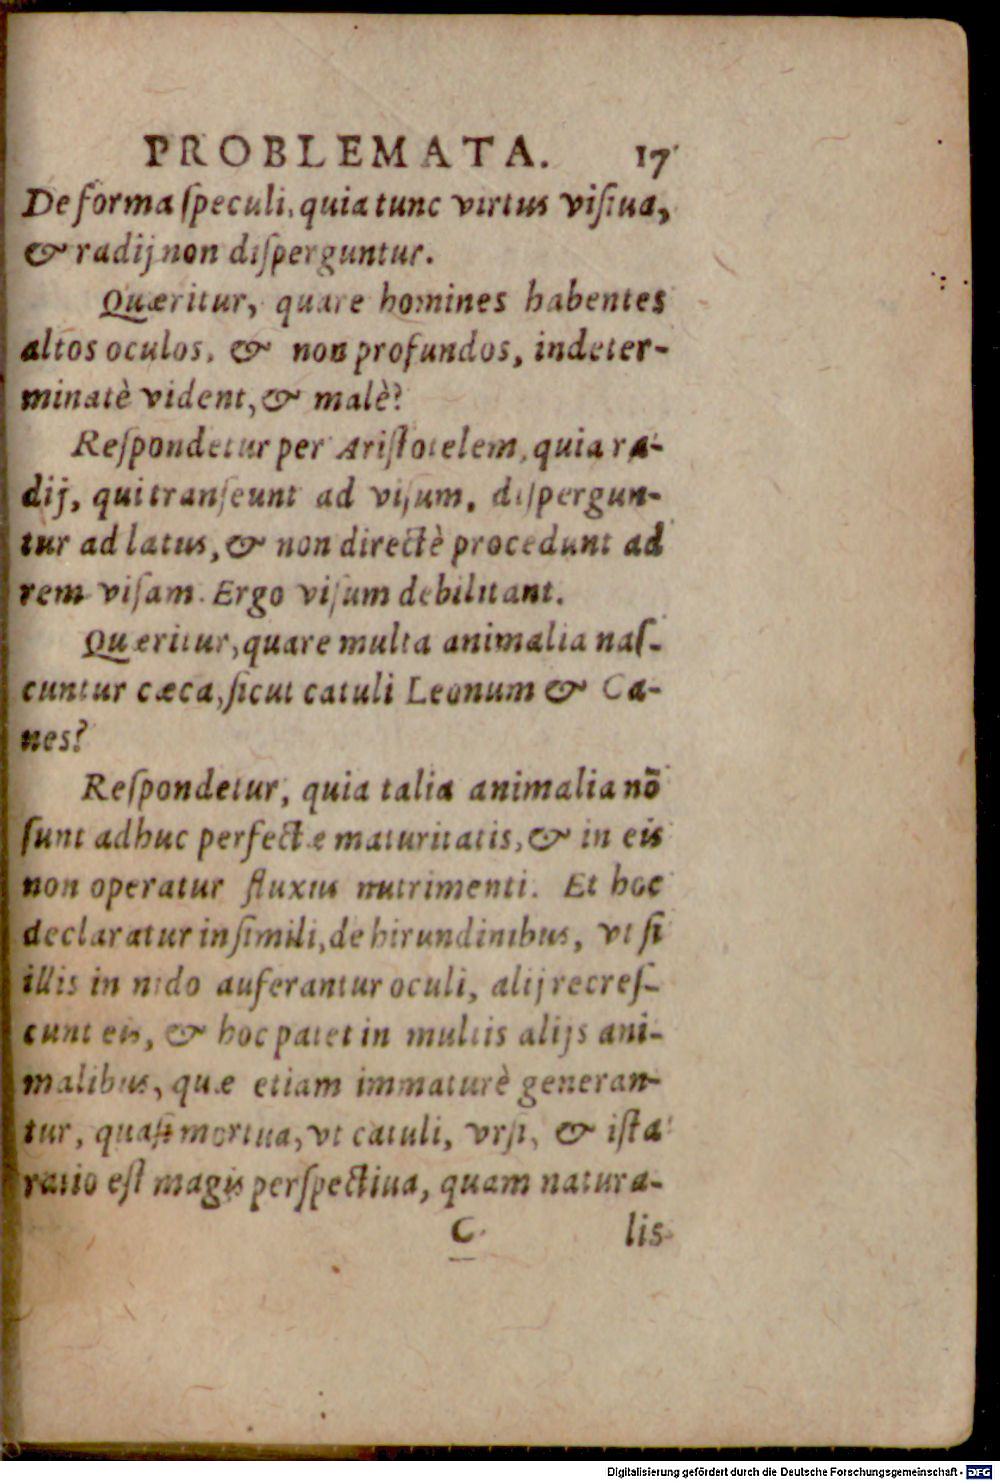 PROBLEMATA. 17
De forma ſpeculi, quia tunc virtus viſiua,
& radij non diſperguntur.
Quæritur, quare homines habentes
altos oculos, & non profundos, indeter-
minatè vident, & malè?
Reſpondetur per Ariſtotelem, quia ra-
dij, qui tranſeunt ad viſum, diſpergun-
tur ad latus, & non directè procedunt ad
rem viſam. Ergo viſum debilitant.
Quæritur, quare multa animalia naſ-
cuntur cæca, ſicut catuli Leonum & Ca-
nes?
Reſpondetur, quia talia animalia nō
ſunt adhuc perfectæ maturitatis, & in eis
non operatur fluxus nutrimenti. Et hoc
declaratur in ſimili, de hirundinibus, vt ſi
illis in nido auferantur oculi, alij recreſ-
cunt eis, & hoc patet in multis alijs ani-
malibus, quæ etiam immaturè generan-
tur, quaſi mortua, vt catuli, vrſi, & iſta
ratio eſt magis perſpectiua, quam natura-
C lis
Digitalisierung gefördert durch die Deutsche Forschungsgemeinschaft - DFG